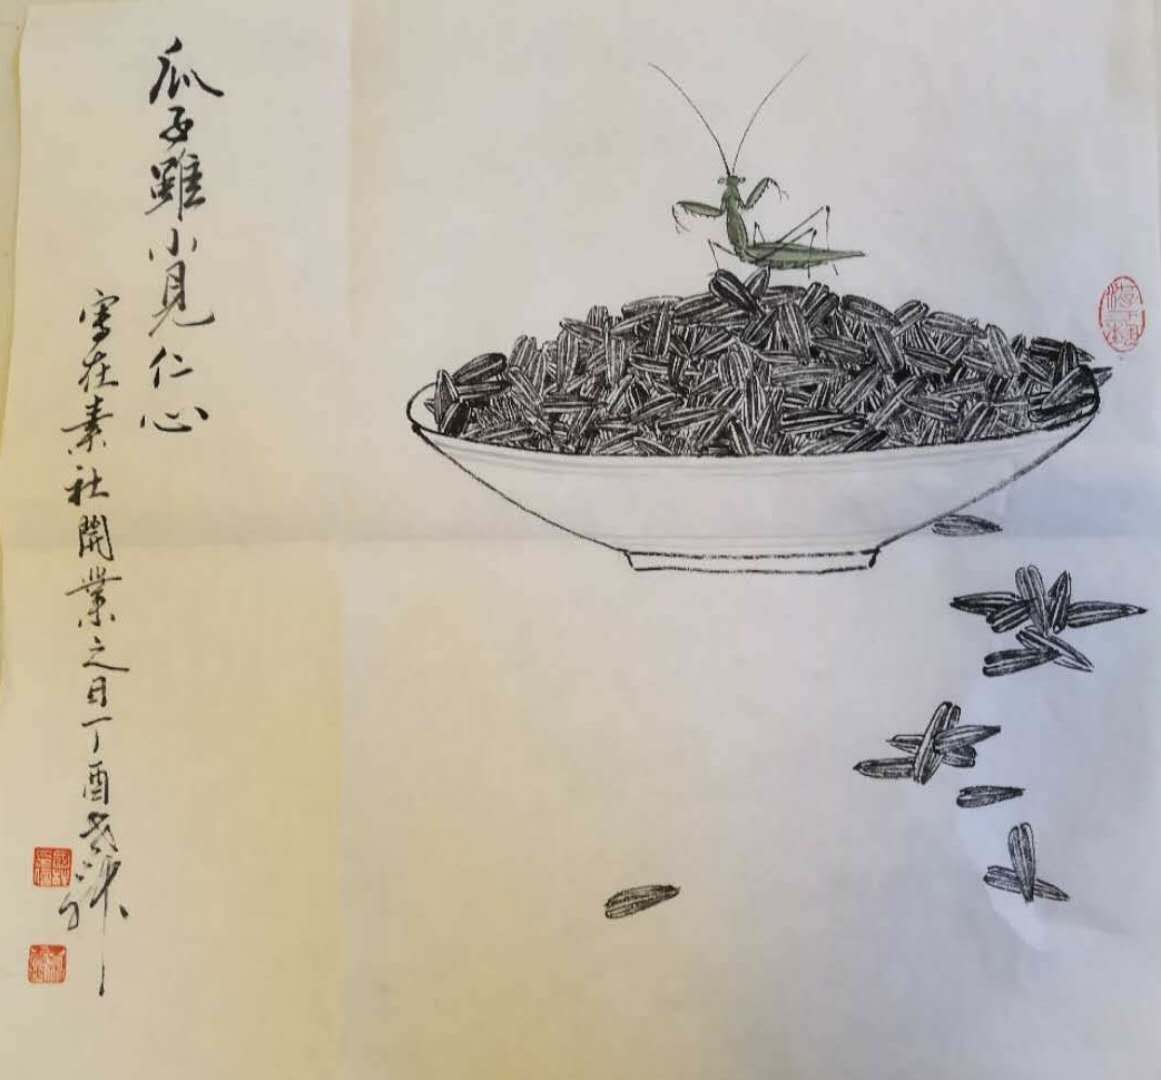 瓜子雖小見仁心
寫在素社開業之日丁酉